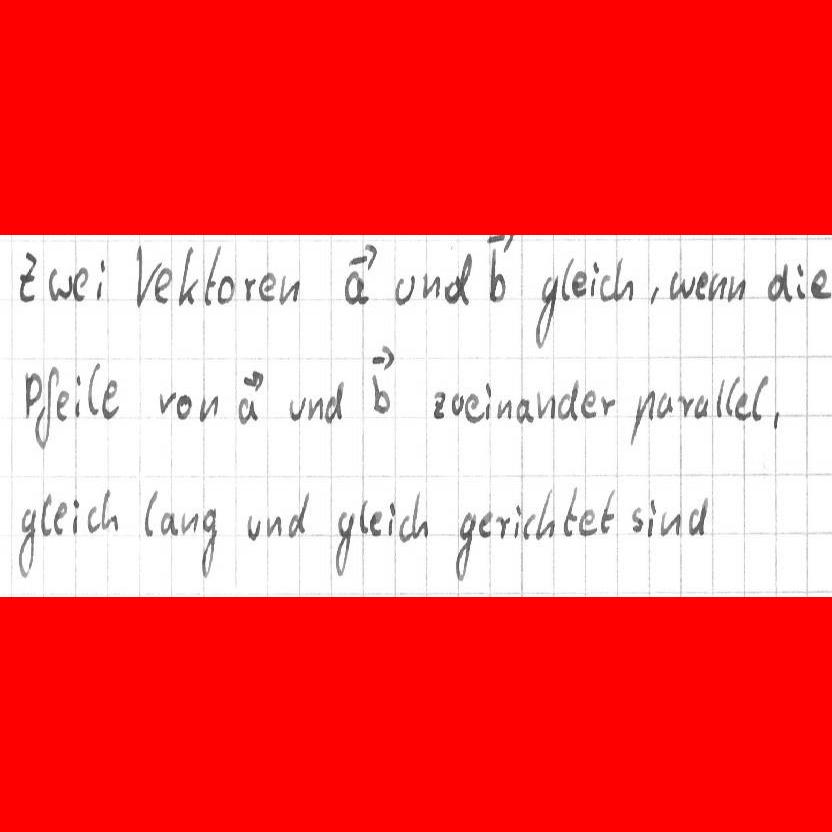 Zwei Vektoren a⃗ und b⃗ gleich, wenn die
Pfeile von a⃗ und b⃗ zueinander parallel,
gleich lang und gleich gerichtet sind